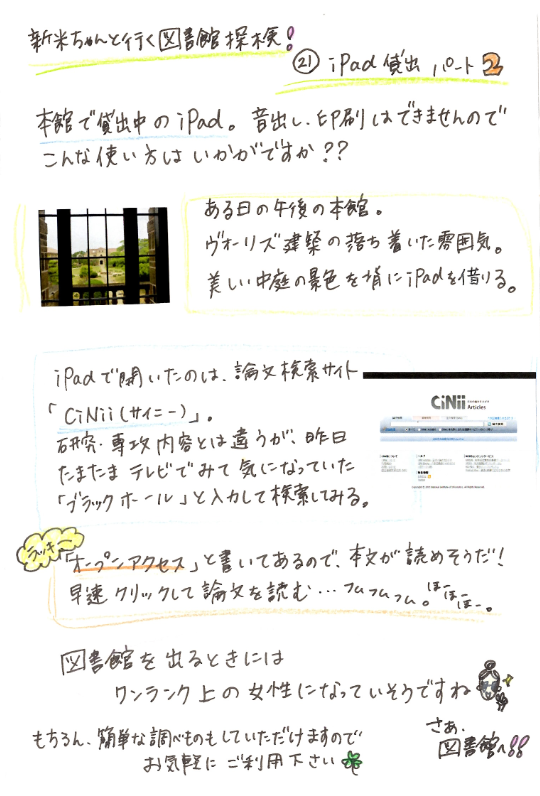 新米ちゃんと行く図書館探検!
㉑ iPad貸出 パート2
本館で貸出中のiPad。音出し、印刷はできませんので
こんな使い方はいかがですか??
ある日の午後の本館。
ヴォーリズ建築の落ち着いた雰囲気。
美しい中庭の景色を背にiPadを借りる。
iPadで開いたのは、論文検索サイト
「CiNii(サイニー)」。
研究・専攻内容とは違うが、昨日
たまたまテレビでみて気になっていた
「ブラックホール」と入力して検索してみる。
CiNii
Articles
ラッキー
「オープンアクセス」と書いてあるので、本文が読めそうだ!
早速クリックして論文を読む…フムフムフム。ほーほーほー。
図書館を出るときには
ワンランク上の女性になっていそうですね
もちろん、簡単な調べものもしていただけますので
お気軽にご利用下さい
さあ、
図書館へ!!